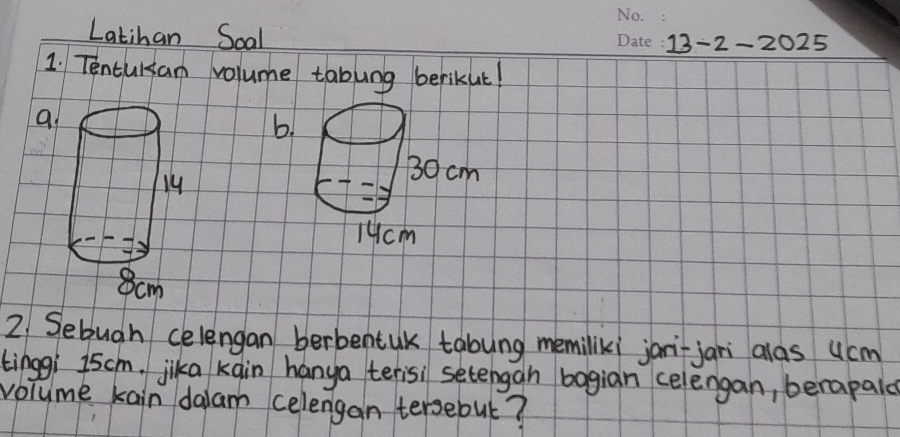 No. :
Latihan Soal
Date : 13-2-2025
1. Tentukan volume tabung berikut!
a.
b.
14
30 cm
14cm
8cm
2. Sebuah celengan berbentuk tabung memiliki jari-jari alas 4cm
tinggi 15cm. jika kain hanya terisi setengah bagian celengan, berapak
volume kain dalam celengan tersebut?